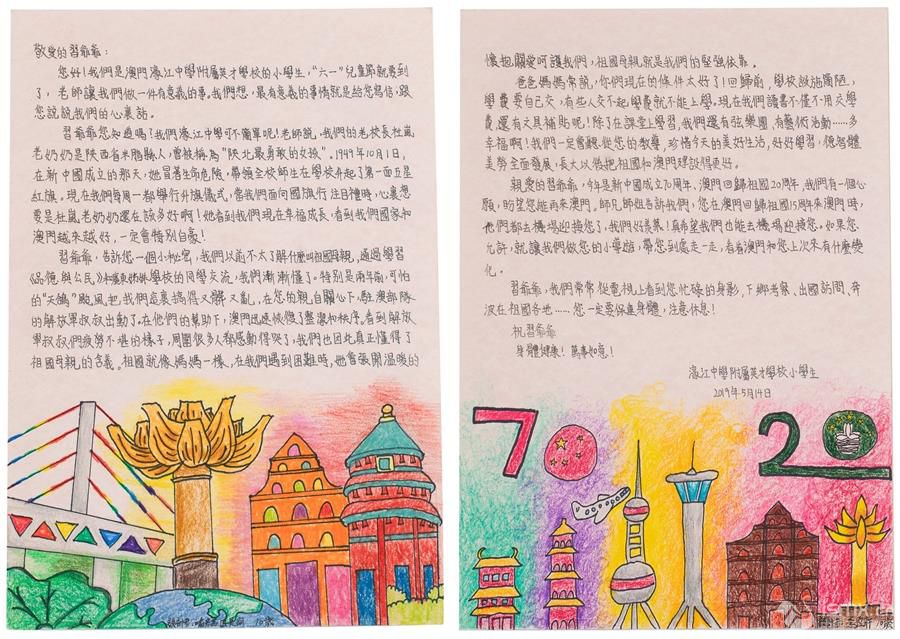 敬愛的習爺爺：
您好！我們是澳門濠江中學附屬英才學校的小學生，“六一”兒童節就要到
了，老師讓我們做一件有意義的事。我們想，最有意義的事情就是給您寫信，跟
您說說我們的心裏話。
習爺爺您知道嗎！我們濠江中學可不簡單呢！老師說，我們的老校長杜嵐
老奶奶是陝西省米脂縣人，曾被稱為“陝北最勇敢的女孩”。1949年10月1日，
在新中國成立的那天，她冒著生命危險，帶領全校師生在學校升起了第一面五星
紅旗。現在我們每周一都舉行升旗儀式，當我們面向國旗行注目禮時，心裏想
要是杜嵐老奶奶還在該多好啊！她看到我們現在幸福成長，看到我們國家和
澳門越來越好，一定會特別自豪！
習爺爺，告訴您一個小秘密，我們以前不太了解什麼叫祖國母親，通過學習
《品德與公民》和學校的同學交流，我們漸漸懂了。特別是兩年前，可怕
的“天鴿”颱風把我們這裏搞得又髒又亂，在您的親自關心下，駐澳部隊
的解放軍叔叔出動了。在他們的幫助下，澳門迅速恢復了整潔和秩序。看到解放
軍叔叔們疲勞不堪的樣子，周圍很多人都感動得哭了，我們也因此真正懂得了
祖國母親的含義。祖國就像媽媽一樣，在我們遇到困難時，她會張開溫暖的
懷抱，關愛呵護我們，祖國母親就是我們的堅強依靠。
爸爸媽媽常說，你們現在的條件太好了！回歸前，學校設施簡陋，
學費要自己交，有些人交不起學費就不能上學。現在我們讀書不僅不用交學
費，還有文具補貼呢！除了在課堂上學習，我們還有弦樂團，有藝術活動……多
幸福啊！我們一定會聽從您的教導，珍惜今天的美好生活，好好學習，德智體
美勞全面發展，長大以後把祖國和澳門建設得更好。
親愛的習爺爺，今年是新中國成立70周年、澳門回歸祖國20周年，我們有一個心
願，盼望您能再來澳門。師兄師姐告訴我們，您在澳門回歸祖國15周年來澳門時，
他們都去機場迎接您了，我們好羨慕！真希望我們也能去機場迎接您。如果您
允許，就讓我們做您的小導遊，帶您到處走一走，看看澳門和您上次來有什麼變
化。
習爺爺，我們常常從電視上看到您忙碌的身影，下鄉考察、出國訪問、奔
波在祖國各地……您一定要保重身體，注意休息！
祝習爺爺
身體健康！萬事如意！
濠江中學附屬英才學校小學生
2019年5月14日
70
20
10歲